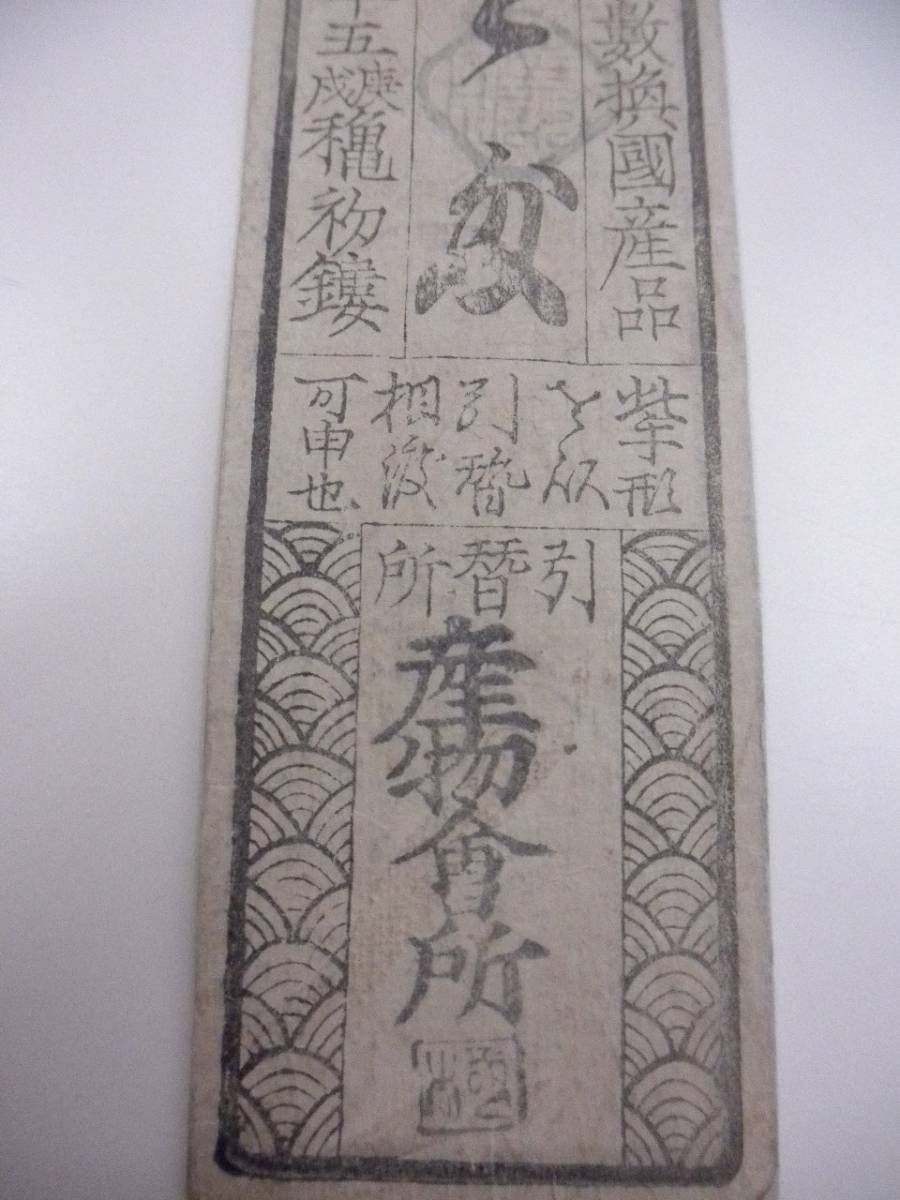 數換國産品
十五庚戌龝初鏤
此手形
を以
引替
相渡
可申也
引替所
産物會所